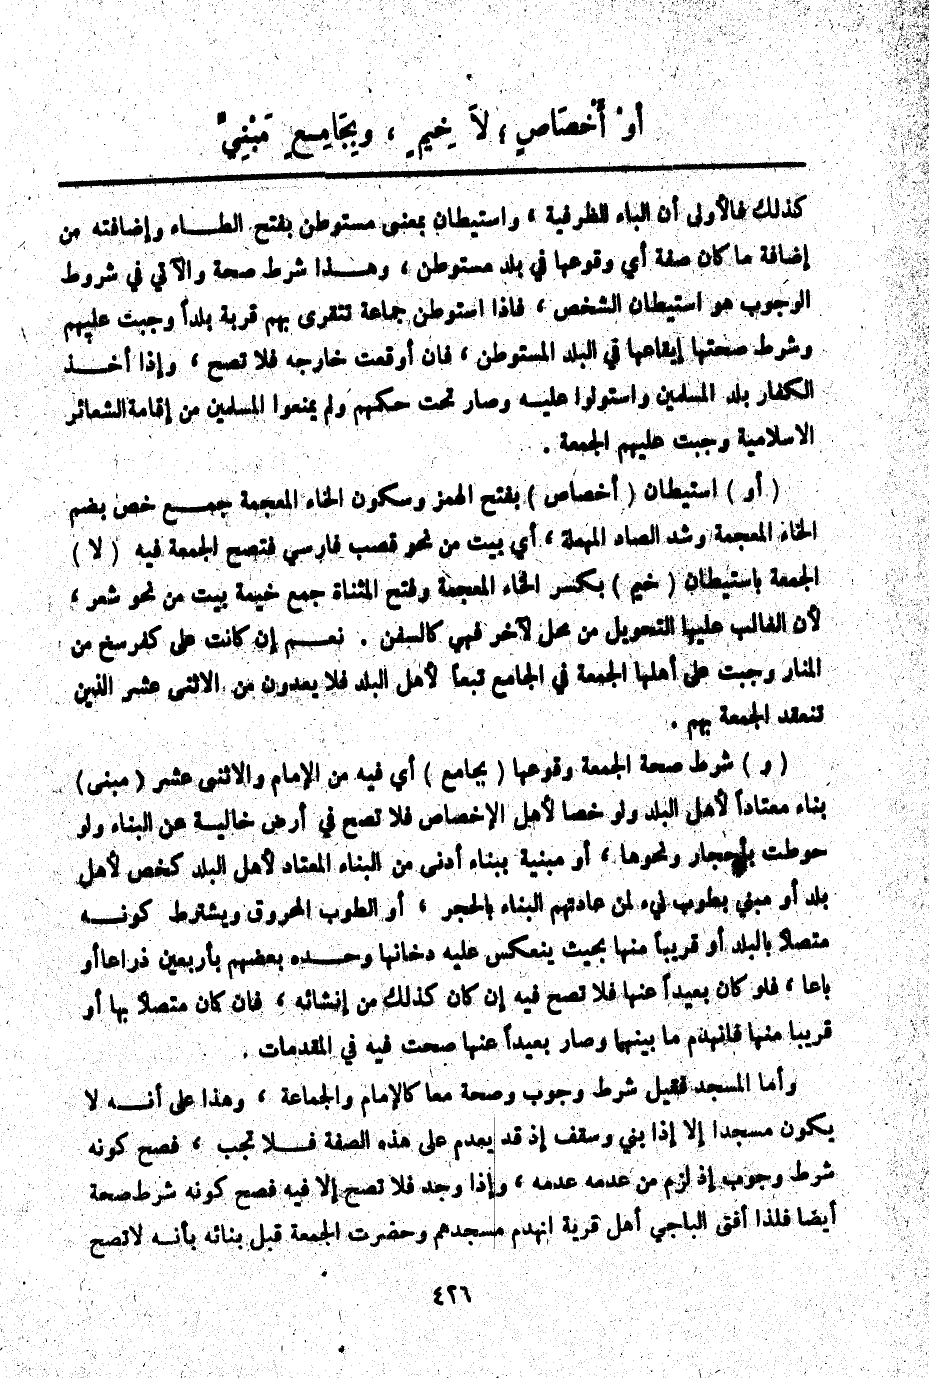 أوْ أَخْصَاصٍ ؛ لاَ خِيمٍ ، وبِجَامِعٍ مَبْنِيٍّ
كذلك فالأولى أن الباء للظرفية ، واستيطان بمعنى مستوطن بفتح الطاء وإضافته من
إضافة ما كان صفة أي وقوعها في بلد مستوطن ، وهذا شرط صحة والآتي في شروط
الوجوب هو استيطان الشخص ، فاذا استوطن جماعة تتقرى بهم قرية بلداً وجبت عليهم
وشرط صحتها إيقاعها في البلد المستوطن ، فان أوقعت خارجه فلا تصح ، وإذا أخذ
الكفار بلد المسلمين واستولوا عليه وصار تحت حكمهم ولم يمنعوا المسلمين من إقامة الشعائر
الاسلامية وجبت عليهم الجمعة .
( أو ) استيطان ( أخصاص ) بفتح الهمز وسكون الخاء المعجمة جمع خص بضم
الخاء المعجمة وشد الصاد المهملة ، أي بيت من نحو قصب فارسي فتصح الجمعة فيه ( لا )
الجمعة باستيطان ( خيم ) بكسر الخاء المعجمة وفتح المثناة جمع خيمة بيت من نحو شعر ،
لأن الغالب عليها التحويل من محل لآخر فهي كالسفن . نعم إن كانت على كفرسخ من
المنار وجبت على أهلها الجمعة في الجامع تبعاً لأهل البلد فلا يعدون من الاثنى عشر الذين
تنعقد الجمعة بهم .
( و ) شرط صحة الجمعة وقوعها ( بجامع ) أي فيه من الإمام والاثنى عشر ( مبنى )
بناء معتاداً لأهل البلد ولو خصا لأهل الإخصاص فلا تصح في أرض خالية عن البناء ولو
حوطت بأحجار ونحوها ، أو مبنية ببناء أدنى من البناء المعتاد لأهل البلد كخص لأهل
بلد أو مبني بطوب نيء لمن عادتهم البناء بالحجر ، أو الطوب المحروق ويشترط كونه
متصلاً بالبلد أو قريباً منها بحيث ينعكس عليه دخانها وحده بعضهم بأربعين ذراعا أو
باعا ، فلو كان بعيداً عنها فلا تصح فيه إن كان كذلك من إنشائه ، فان كان متصلاً بها أو
قريبا منها فانهدم ما بينهما وصار بعيداً عنها صحت فيه في المقدمات .
وأما المسجد فقيل شرط وجوب وصحة معا كالإمام والجماعة ، وهذا على أنه لا
يكون مسجدا إلا إذا بني وسقف إذ قد يعدم على هذه الصفة فلا تجب ، فصح كونه
شرط وجوب إذ لزم من عدمه عدمه ، وإذا وجد فلا تصح إلا فيه فصح كونه شرط صحة
أيضا فلذا أفتى الباجي أهل قرية انهدم مسجدهم وحضرت الجمعة قبل بنائه بأنه لا تصح
٤٢٦